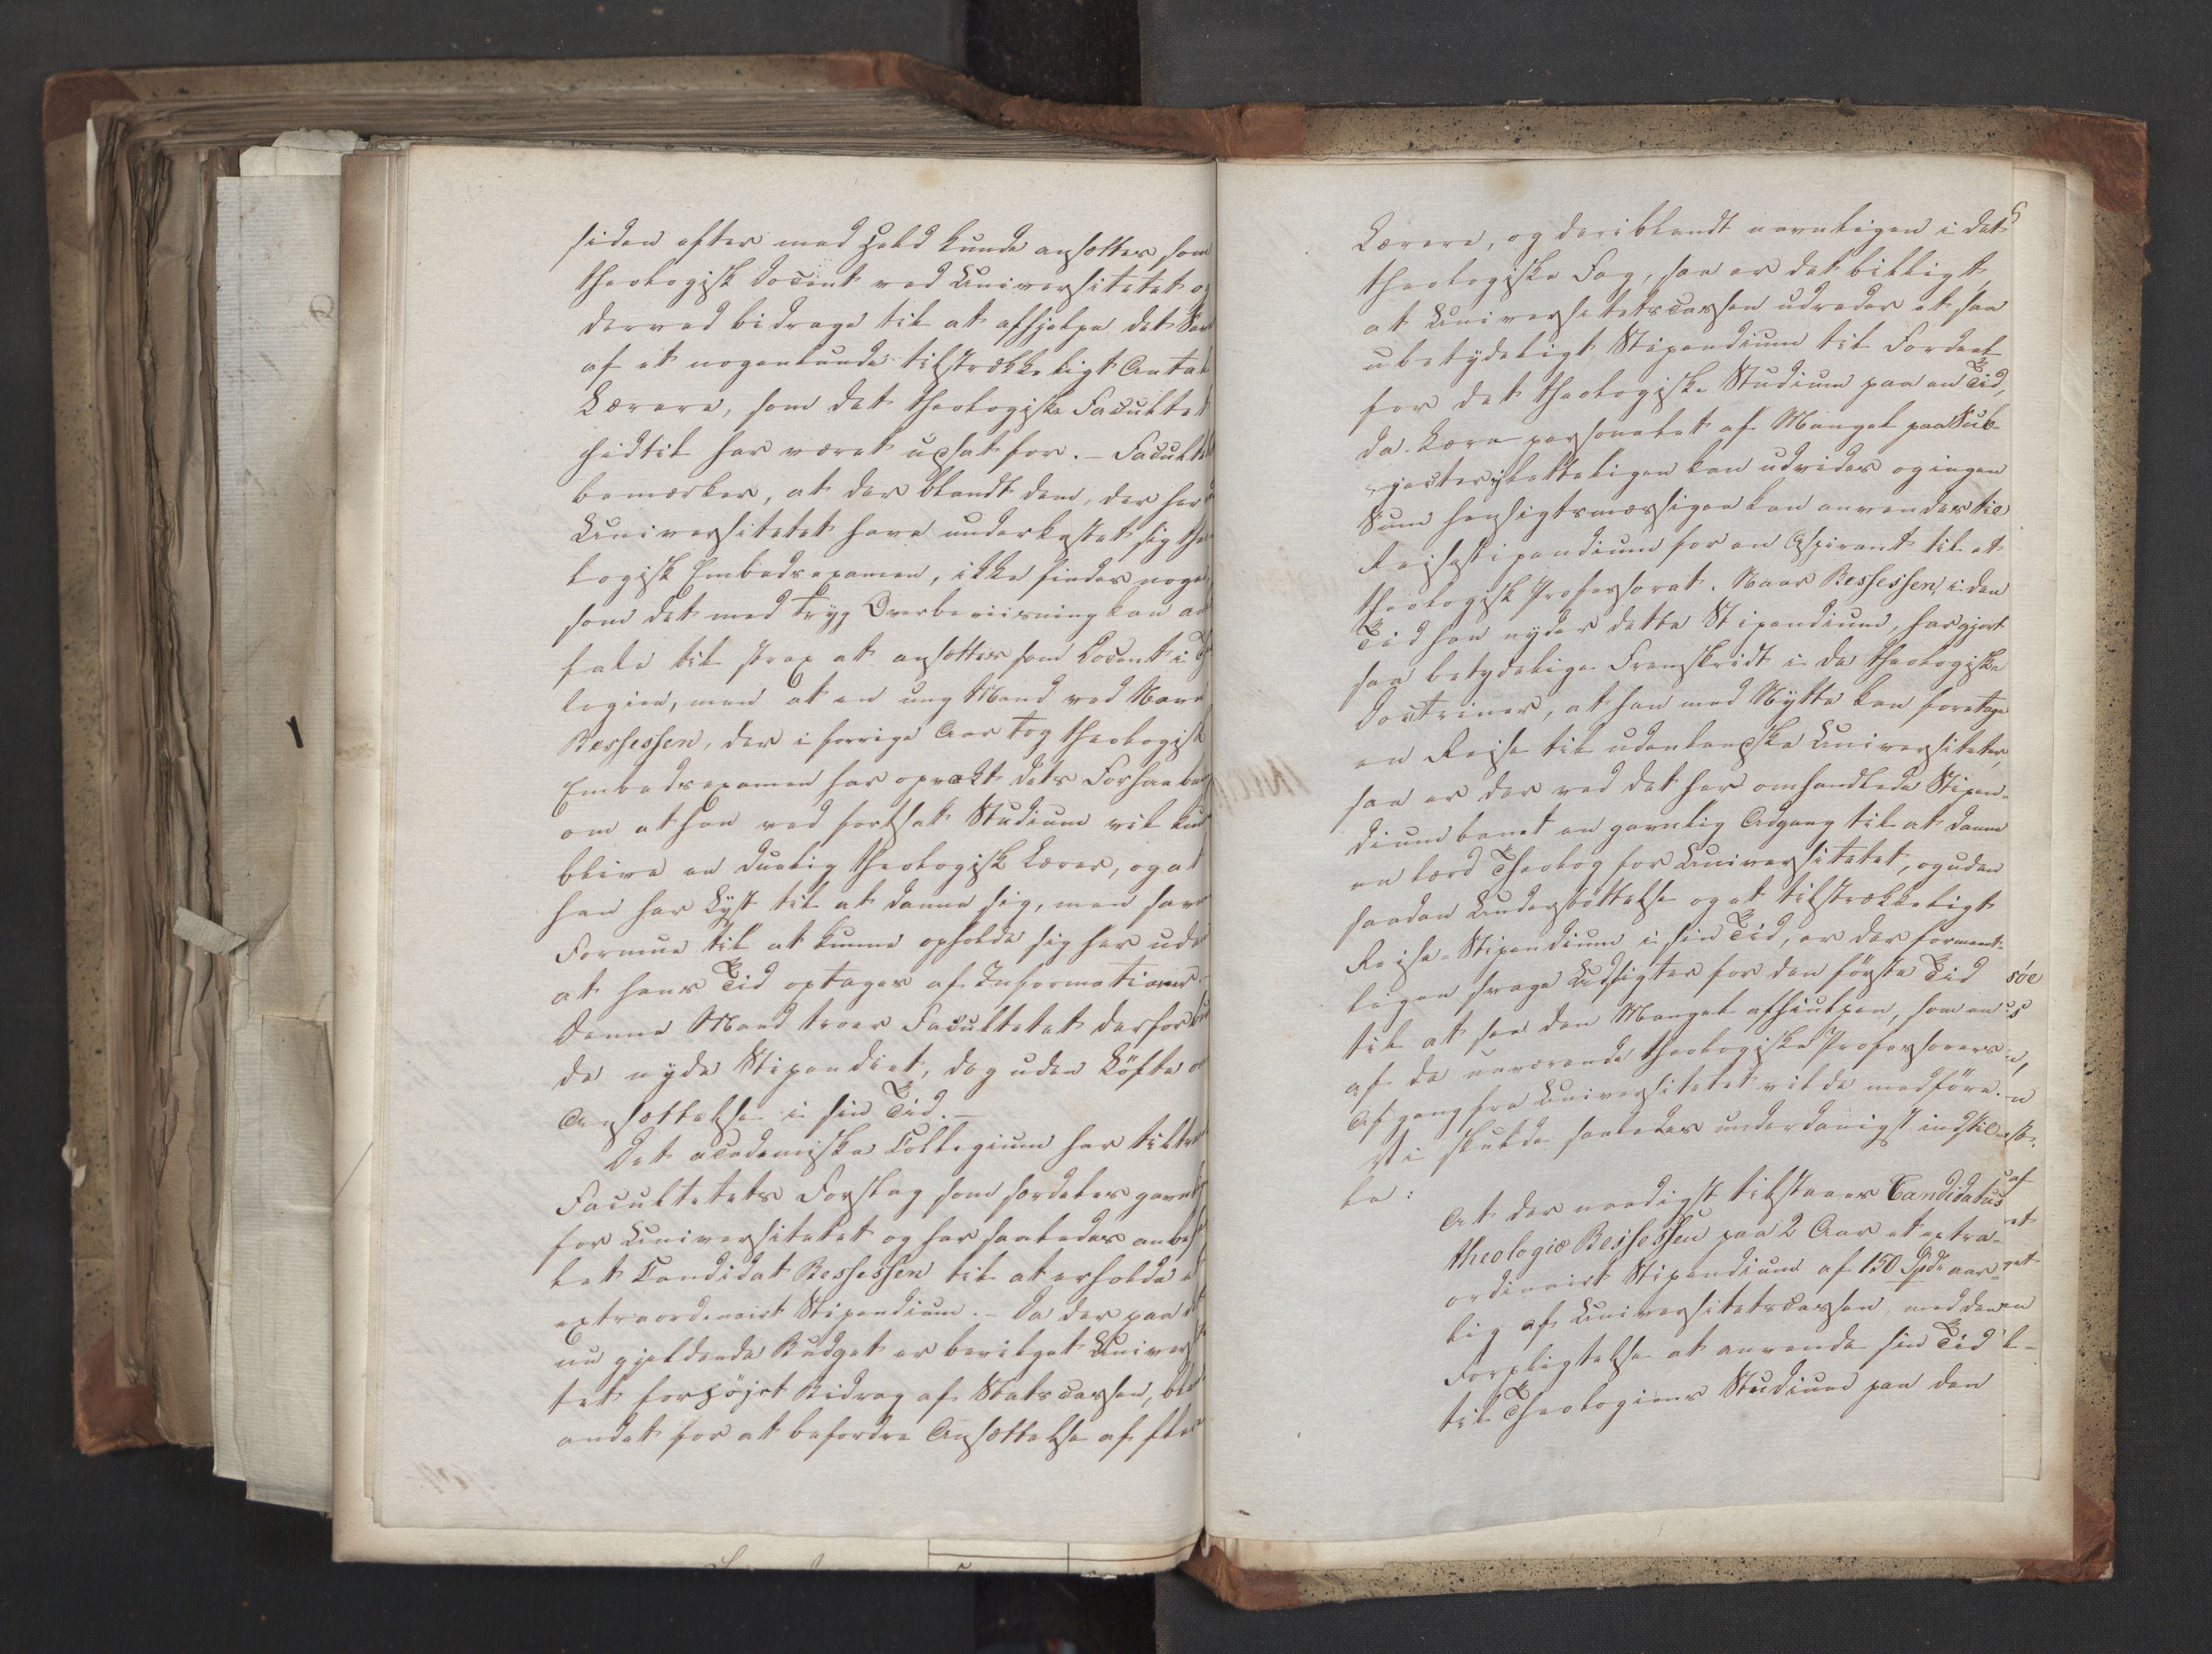 siden efter med Held kunde ansættes som
theologisk Docent ved Universitetet og
derved bidrage til at afhjelpe det Savn
af et nogenlunde tilstrækkeligt Antal
Lærere, som det theologiske Facultet
hidtil har været udsat for. – Facultet
bemærker, at der blandt dem, der her
Universitetet have underkastet sig theo-
logisk Embedsexamen, ikke findes nogen,
som det med tryg Overbeviisning kan an
fale til strax at ansættes som Docent i Th
logien, men at en ung Mand ved Navn
Bessesen, der i forrige Aar tog theologisk
Embedsexamen har opvakt dets Forhaabn
om at han ved fortsat Studium vil kun
blive en duelig theologisk Lærer, og at
han har Lyst til at danne sig, men savn
Formue til at kunne opholde sig her uden
at hans Tid optages af Informationer.
Denne Mand troer Facultetet derfor bur
de nyde Stipendiet, dog uden Löfte om
Ansættelse i sin Tid. –
Det academiske Collegium har tiltraadt
Facultetets Forslag som særdeles gavnlig
for Universitetet og har saaledes anbef
let Candidat Bessesen til at erholde et
extraordinairt Stipendium. – Da der paa det
nu gjeldende Budget er bevilget Univers
tet forhöjet Bidrag af Statscassen, bl
andet for at befordre Ansættelse af flere
Lærere, og deriblandt navnligen i det
theologiske Fag, saa er det billigt,
at Universitetscassen udreder et saa
ubetydeligt Stipendium til Fordeel
for det theologiske Studium paa en Tid,
da Lærepersonalet af Mangel paa Sub-
jecter ej letteligen kan udvides og ingen
Sum hensigtsmæssigen kan anvendes til
Reisestipendium for en Aspirant til et
theologisk Professorat. Naar Bessesen, i den
Tid han nyder dette Stipendium, har gjort
saa betydelige Fremskridt i de theologiske
Doctriner, at han med Nytte kan foretage
en Reise til udenlandske Universiteter,
saa er der ved det her omhandlede Stipen-
dium banet en gavnlig Adgang til at danne
en lærd Theolog for Universitetet, og uden
saadan Understöttelse og et tilstrækkeligt
Reise-Stipendium i sin Tid, er der formeent-
ligen svage Udsigter for den förste Tid
til at see den Mangel afhiulpen, som en
af de nuværende theologiske Professorers
Afgang fra Universitetet vilde medföre.
Vi skulde saaledes underdanigst indstil-
le:
At der naadigst tilstaaes Candidatus
theologiæ Bessesen paa 2 Aar et extra-
ordinairt Stipendium af 150 Spd. aar-
lig af Universitetscassen, med den
Forpligtelse at anvende sin Tid
til Theologiens Studium paa den